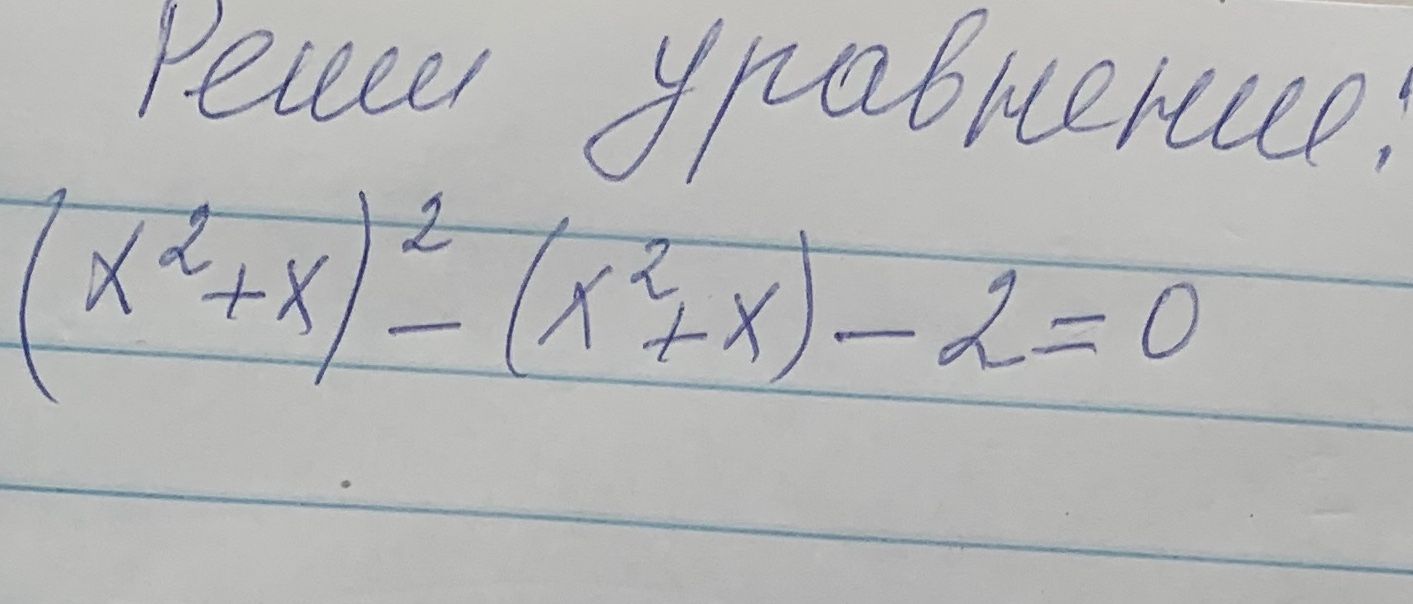 Реши уравнение:
(x²+x)² - (x²+x) - 2 = 0